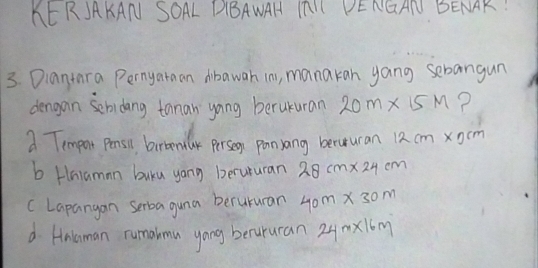 KERJAKAN SOAL DIBAWAH INI DENGAN BENAR!
3. Diantara Pernyataan dibawah ini, manakah yang sebangun
dengan sebidang tanah yang berukuran 20 m x 15 M ?
a Tempat Pensil berbentuk Persegi panjang berukuran 12 cm x 9 cm
b Halaman buku yang berukuran 28 cm x 24 cm
c Lapangan serba guna berukuran 40 m x 30 m
d. Halaman rumahmu yang berukuran 24 m x 16 m